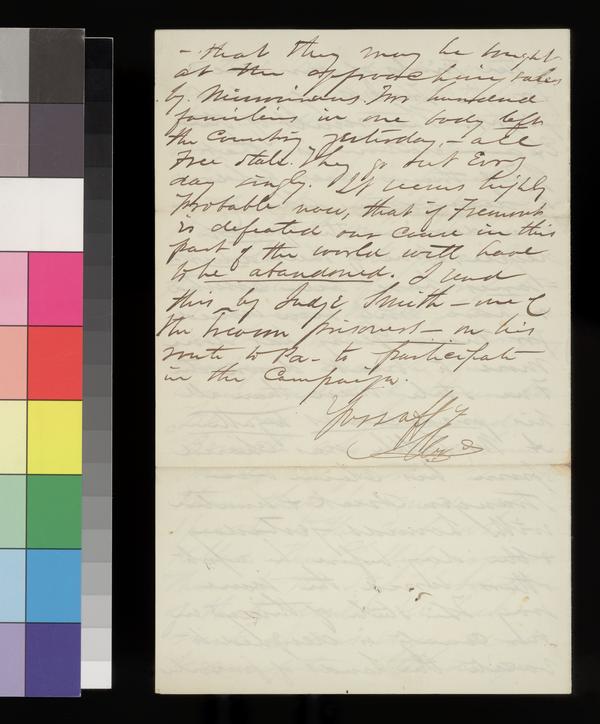 - that they may be bought
at the approaching sales
by Missourians. Two hundred
families in one body left
the Country yesterday, - all
Free State. They go out Every
day singly. It seems highly
probable now, that if Fremont
is defeated our cause in this
part of the world will have
to be abandoned. I send
this by Judge Smith - one of
the Treason prisoners - on his
route to Pa - to participate
in the Campaign.
Yors aff y